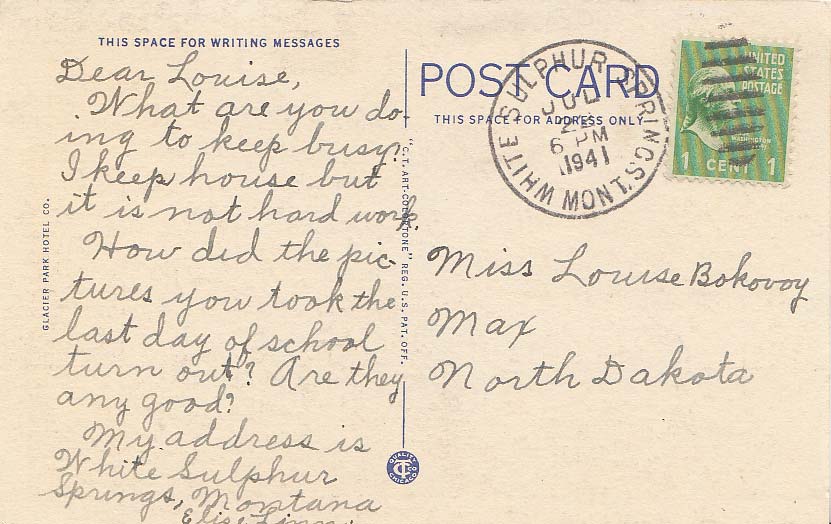 THIS SPACE FOR WRITING MESSAGES
Dear Louise,
What are you do-
ing to keep busy?
I keep house but
it is not hard work.
How did the pic-
tures you took the
last day of school
turn out? Are they
any good?
My address is
White Sulphur
Springs, Montana
GLACIER PARK HOTEL CO.
"C.T. ART-COLORTONE" REG. U.S. PAT. OFF.
QUALITY
CHICAGO
POST CARD
THIS SPACE FOR ADDRESS ONLY
WHITE SULPHUR SPRINGS MONT.
JUL
6 PM
1941
UNITED
STATES
POSTAGE
WASHINGTON
1 CENT 1
Miss Louise Bokovoy
Max
North Dakota